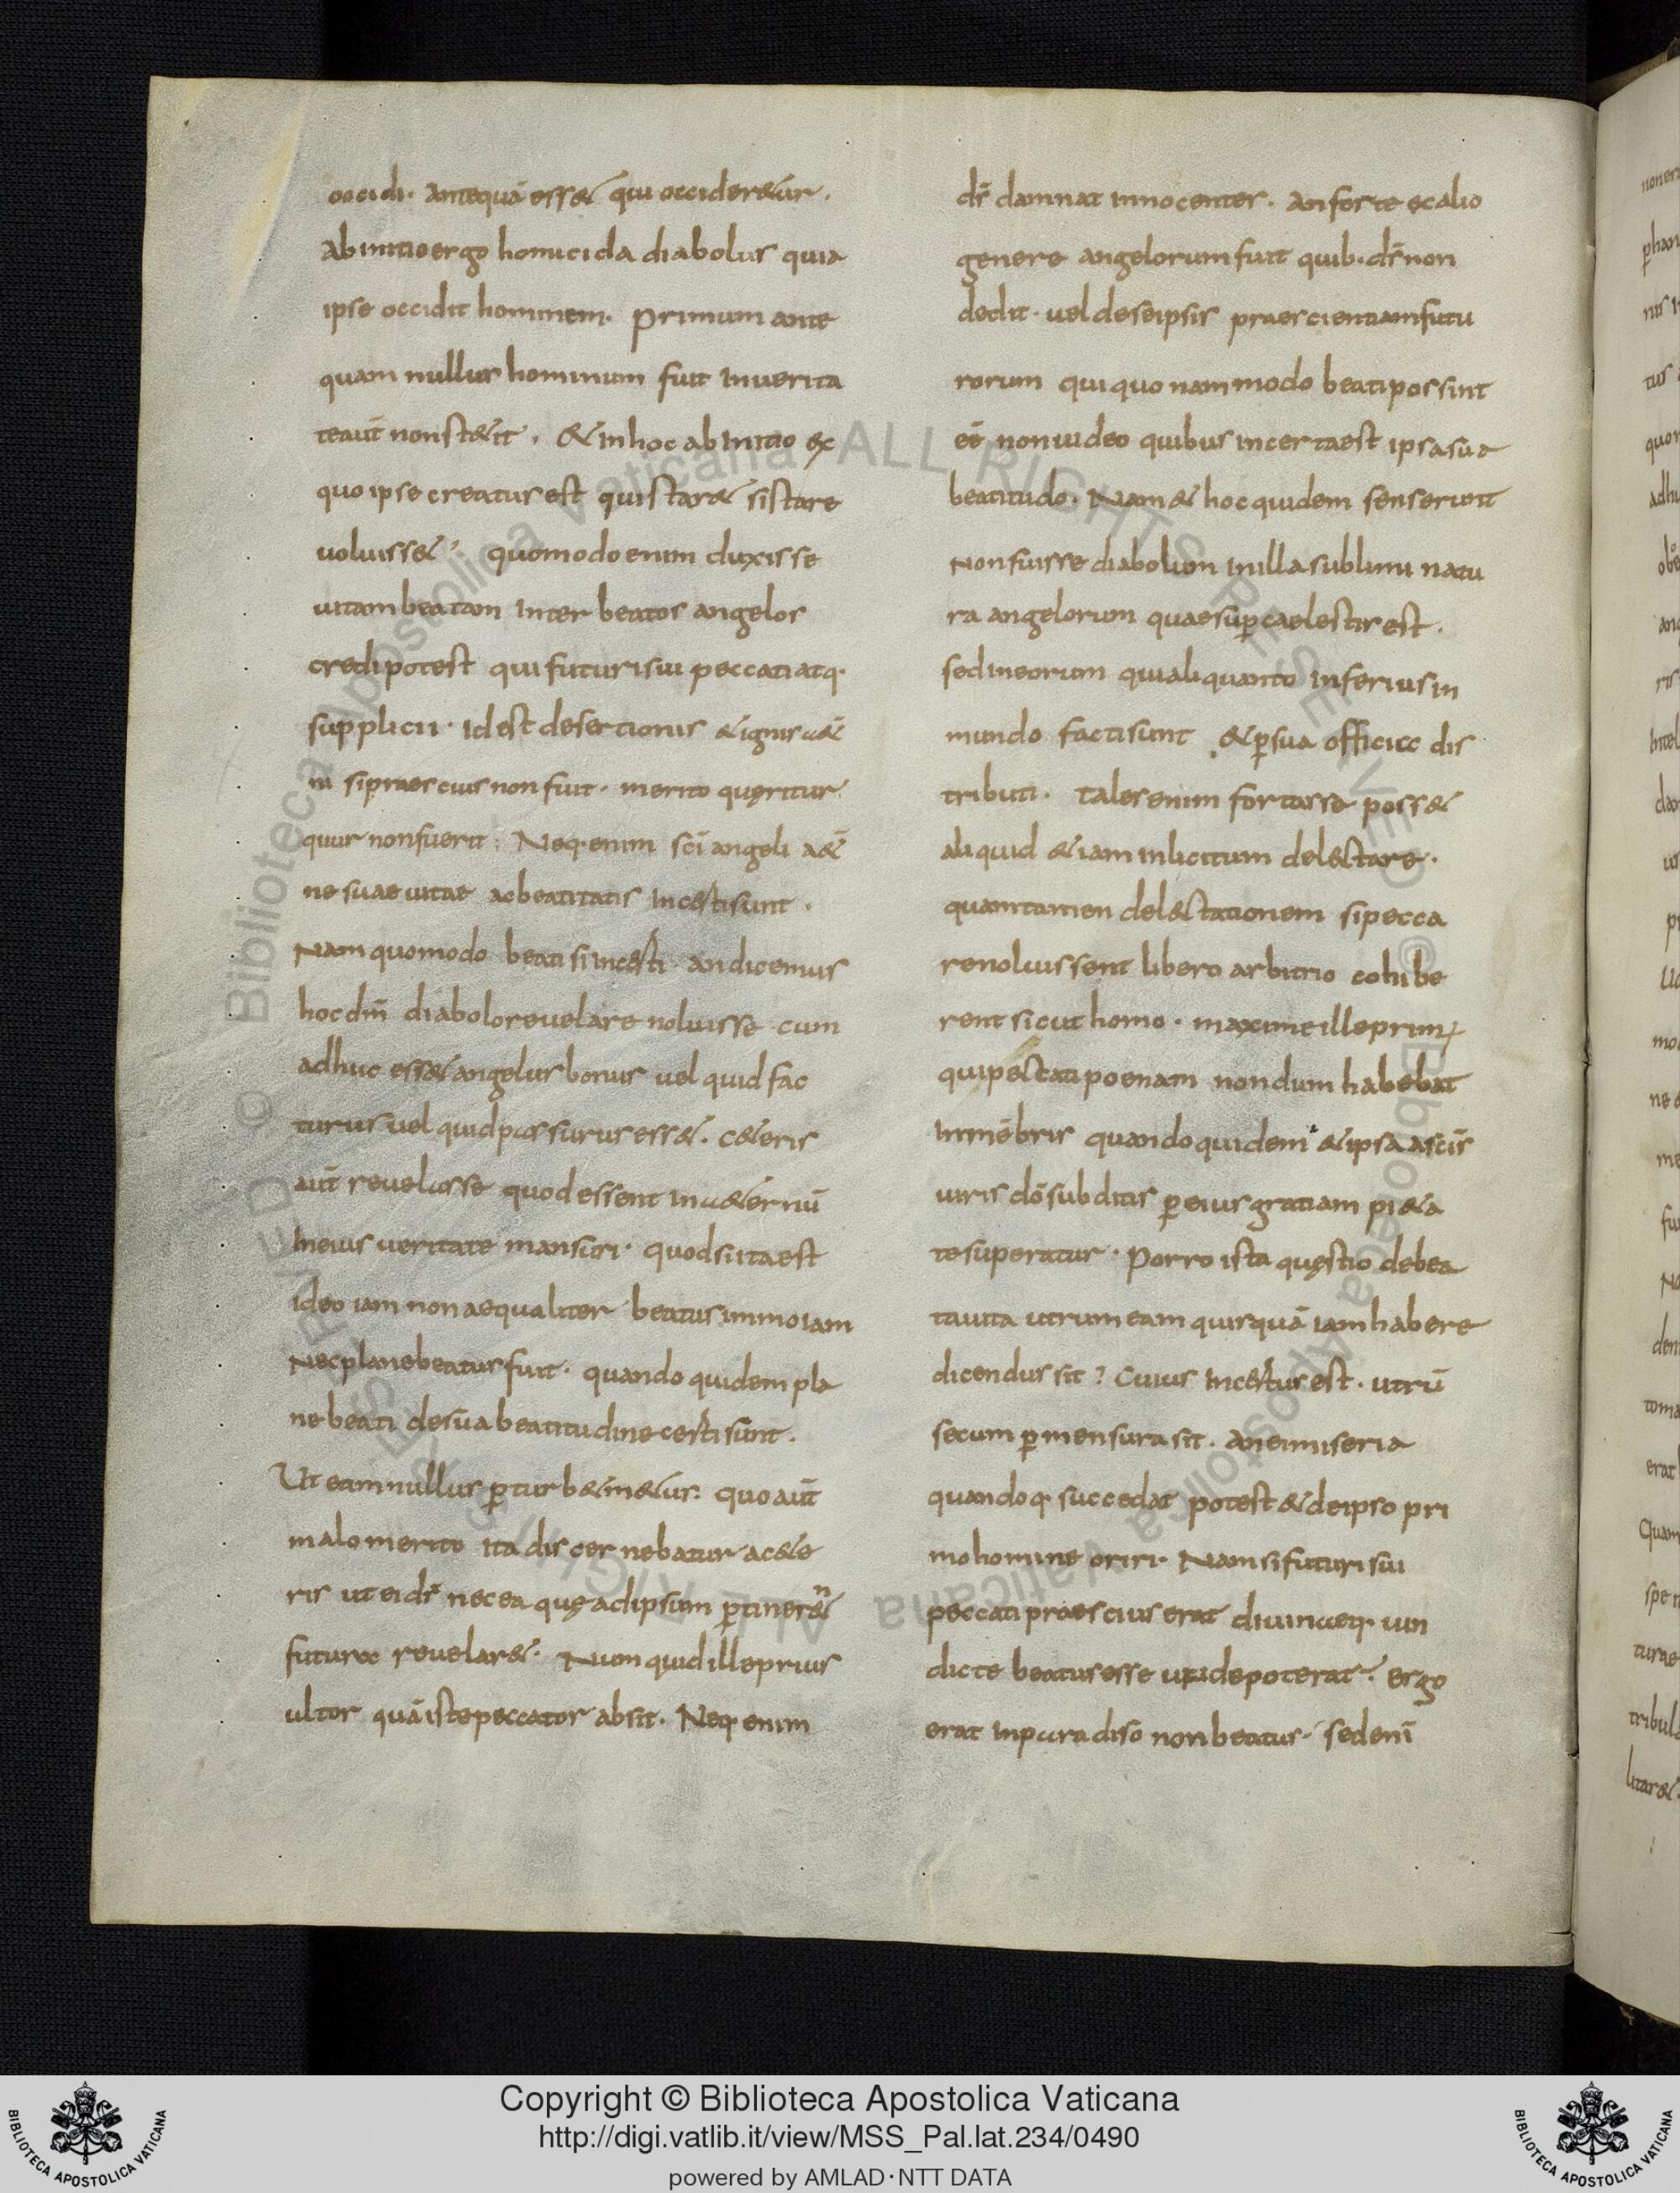 occidi. Antequā ess& qui occider&ur.
Abinitio ergo homicida diabolus quia
ipse occidit hominem. primum ante
quam nullus hominum fuit Inuerita
teaūt non st&it. & In hoc ab Initio ex
quo ipse creatus est qui star& si stare
uoluiss&. quomodo enim duxisse
uitam beatam Inter beatos angelos
credi potest qui futuri sui peccati atq.
supplicii. Id est desertionis & ignis a&
ni si praescius non fuit. merito queritur
quur non fuerit. Neq. enim sci angeli a&
ne suae uitae ac beatitatis Incerti sunt.
Nam quomodo beati si Incerti. an dicemus
hoc dm̄ diabolo reuelare noluisse cum
adhuc ess& angelus bonus uel quid fac
turus uel quid passurus ess&. C&eris
aūt reuelasse quod essent In a&ernū
In eius ueritate mansuri. quod si ita est
ideo iam non aequaliter beatus immo iam
Nec plane beatus fuit. quando quidem pla
ne beati de sua beatitudine certi sunt.
Ut eam nullus p̱turb& m&us. quo aūt
malo merito ita discernebatur a c&e
ris ut ei d̄s nec ea quę ad ipsum p̱tiner&n
futura reuelar&. Numquid ille prius
ultor quā iste peccator absit. Neq. enim
d̄s damnat innocentes. An forte ex alio
genere angelorum fuit quib. d̄s non
dedit. uel de se ipsis praescientiam futu
rorum qui quonam modo beati possint
eē non uideo quibus incerta est ipsa sua
beatitudo. Nam & hoc quidem senserunt
Non fuisse diabolum In illa sublimi natu
ra angelorum quae sup̱caelestis est.
sed in eorum qui aliquanto Inferius in
mundo facti sunt & p̱ sua officia dis
tributi. tales enim fortasse poss&
aliquid & iam inlicitum delectare.
quam tamen del&ctationem si pecca
re noluissent libero arbitrio cohibe
rent sicut homo. maxime ille primꝰ
qui peccati poenam nondum habebat
In mēbris quando quidem & ipsa a scīs
uiris dō subditis p̱ eius gratiam pi&a
te superatur. Porro ista quęstio de bea
ta uita utrum eam quisquā iam habere
dicendus sit? Cuius Incertus est. utrū
secum p̱mensura sit. an ei miseria
quandoq. succedat potest & de ipso pri
mo homine oriri. Nam si futuri sui
peccati praescius erat diuinaeq. uin
dicte beatus esse unde poterat? ergo
erat In paradiso non beatus. sed enī
Copyright © Biblioteca Apostolica Vaticana
http://digi.vatlib.it/view/MSS_Pal.lat.234/0490
powered by AMLAD·NTT DATA
BIBLIOTECA APOSTOLICA VATICANA
BIBLIOTECA APOSTOLICA VATICANA